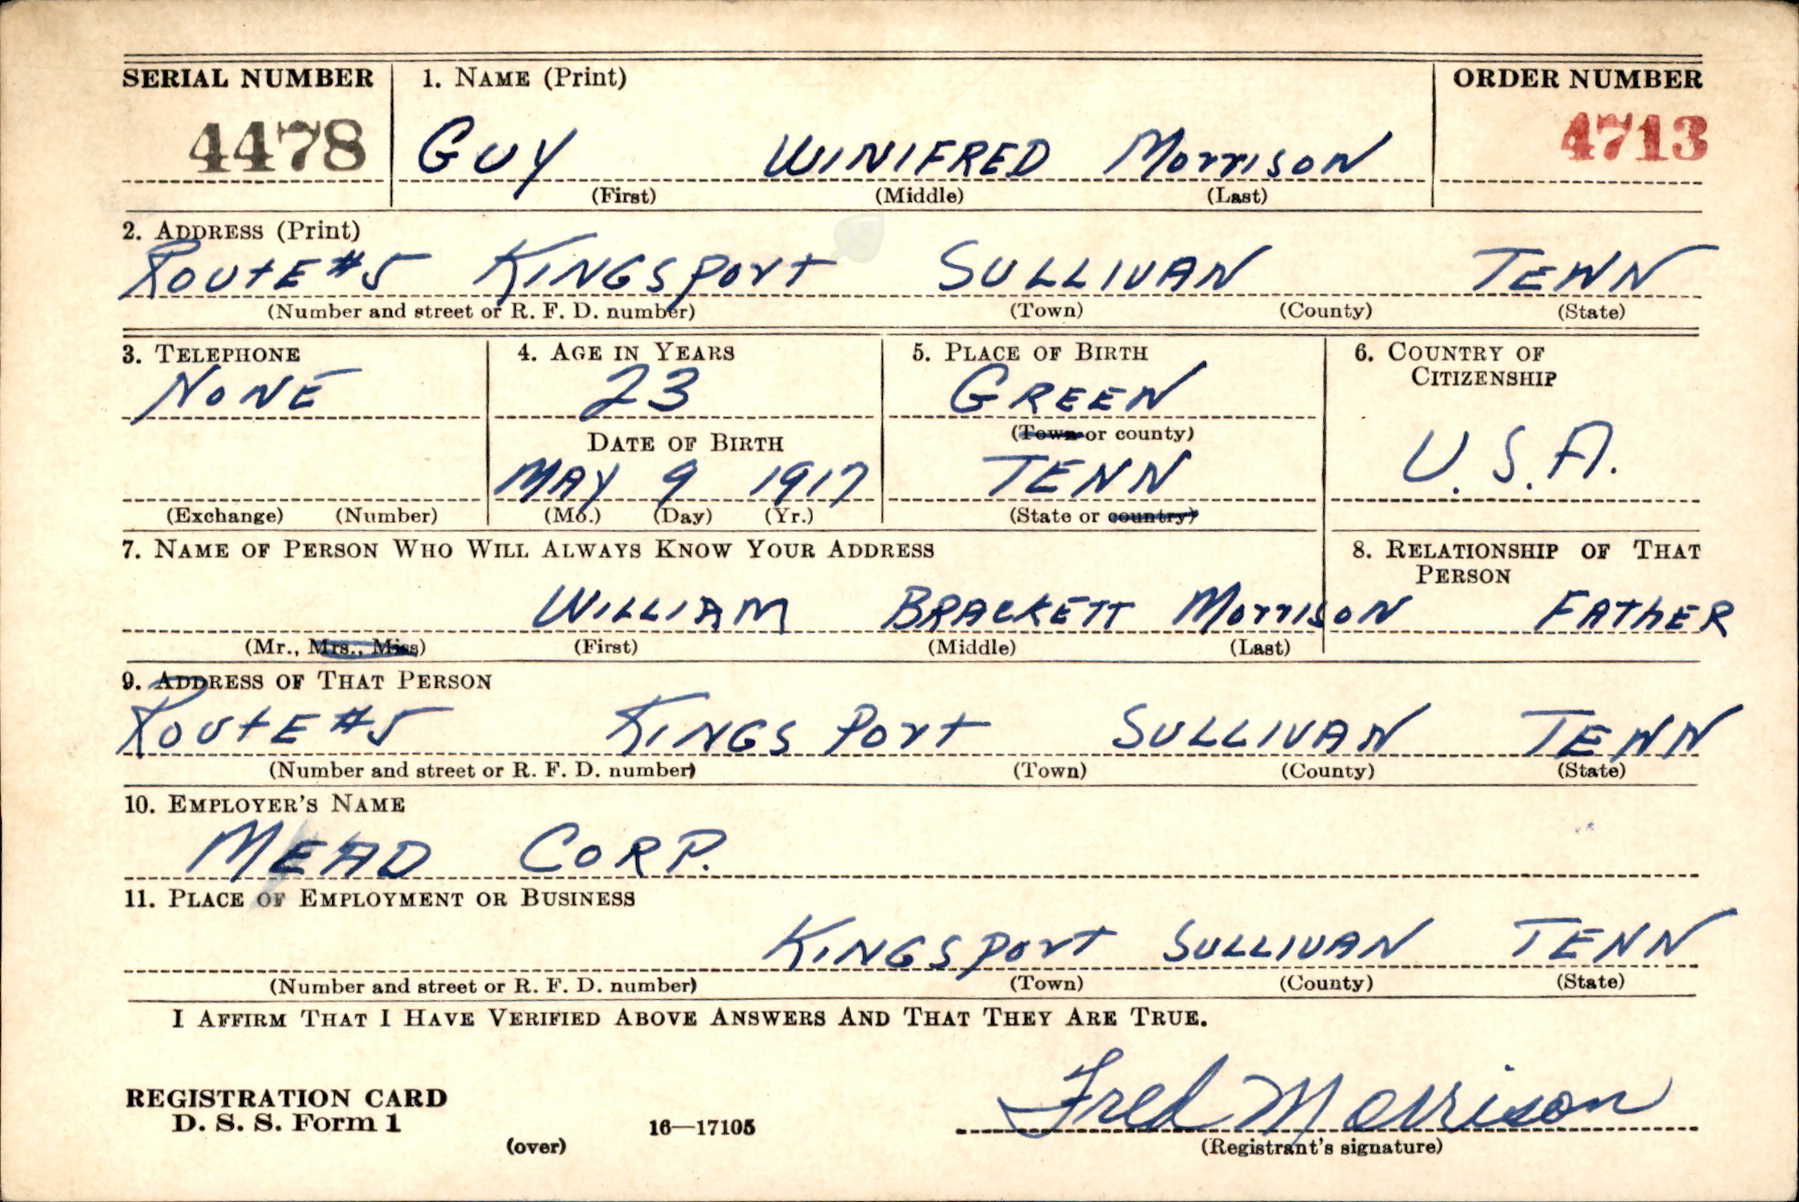 SERIAL NUMBER 1. NAME (Print) ORDER NUMBER
4478 GUY WINIFRED Morrison 4713
(First) (Middle) (Last)
2. ADDRESS (Print)
RoutE #5 KINGSport SULLIVAN TENN
(Number and street or R. F. D. number) (Town) (County) (State)
3. TELEPHONE 4. AGE IN YEARS 5. PLACE OF BIRTH 6. COUNTRY OF CITIZENSHIP
NoNE 23 GREEN
(Town or county)
DATE OF BIRTH
MAY 9 1917 TENN U.S.A.
(Exchange) (Number) (Mo.) (Day) (Yr.) (State or country)
7. NAME OF PERSON WHO WILL ALWAYS KNOW YOUR ADDRESS 8. RELATIONSHIP OF THAT PERSON
WILLIAM BRACKETT Morrison FAthER
(Mr., Mrs., Miss) (First) (Middle) (Last)
9. ADDRESS OF THAT PERSON
RoutE #5 KINGS Port SULLIVAN TENN
(Number and street or R. F. D. number) (Town) (County) (State)
10. EMPLOYER'S NAME
MEAD CORP.
11. PLACE OF EMPLOYMENT OR BUSINESS
KINGSport SULLIVAN TENN
(Number and street or R. F. D. number) (Town) (County) (State)
I AFFIRM THAT I HAVE VERIFIED ABOVE ANSWERS AND THAT THEY ARE TRUE.
Fred Morrison
REGISTRATION CARD
D. S. S. Form 1 16—17105
(over) (Registrant's signature)